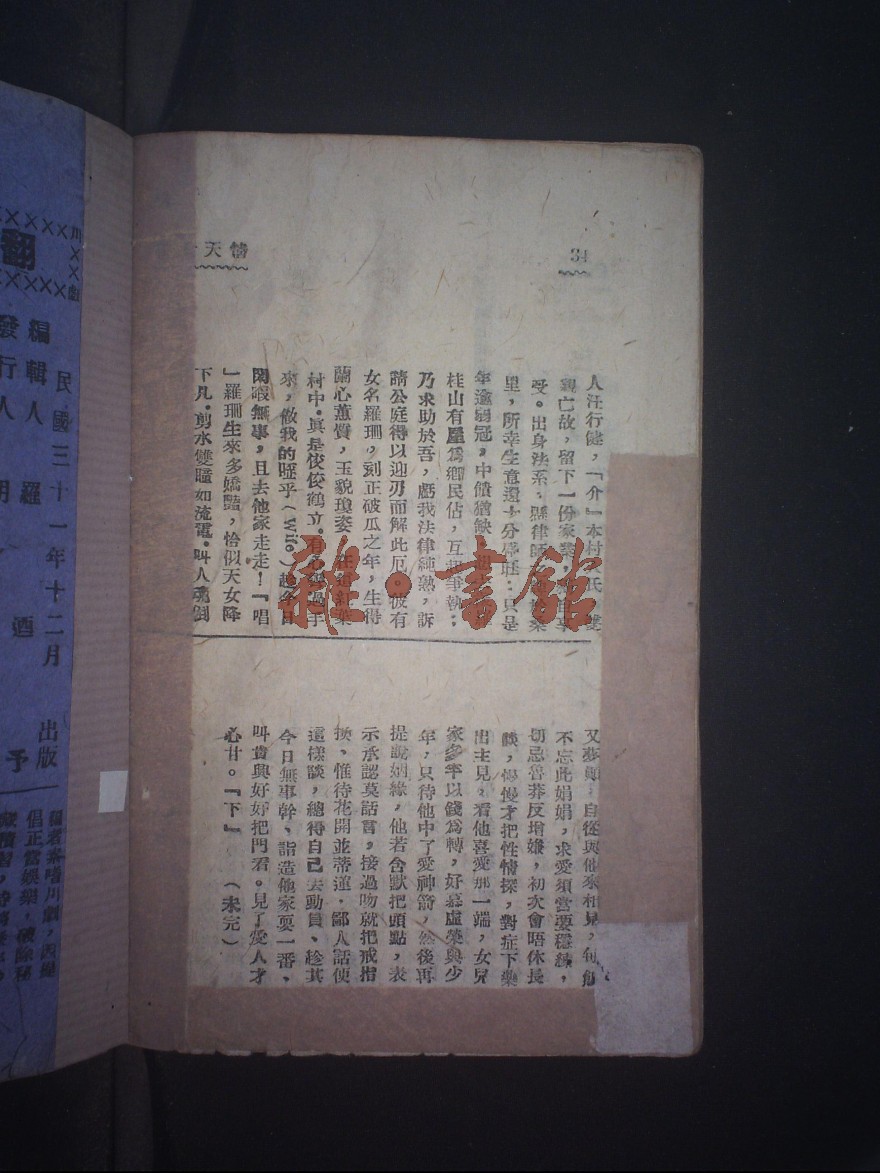 34
恨天
人汪行健,「介」本村人氏,雙
親亡故,留下一份家業,
受。出身法系,縣律師
里,所幸生意還十分興旺:只是
年逾弱冠,中饋猶缺
桂山有屋為鄉民佔,互起爭執:
乃求助於吾,虧我法律純熟,訴
請公庭得以迎刃而解此厄。彼有
女名羅珊,刻正破瓜之年,生得
蘭心蕙質,玉貌瓊姿,在這紅葉
村中。真是佼佼鶴立。有心弄過手
來,做我的哑乎(Wifo)趁今日
閑暇無事,且去他家走走!『唱
』羅珊生來多嬌豔,恰似天女降
下凡。剪水雙瞳如流電。叫人魂倒
又夢顛,自從與他來相見,
不忘此娟娟,求愛須當要穩練,
切忌魯莽反增嫌,初次會晤休長
談,慢慢才把性情探,對症下藥
出主見,看他喜愛那一端,女兒
家多半以錢為轉,好慕虛榮與少
年,只待他中了愛神箭,然後再
提說姻緣,他若含默把頭點,表
示承認莫話言,接過吻就把戒指
換,惟待花開並蒂蓮,鄙人話便
這樣談,總得自己去動員、趁其
今日無事幹、詣造他家耍一番、
叫貴興好好把門看。見了愛人才
心甘。『下』(未完)
川
劇
翻
編輯人 羅
發行人 明
民國三十一年十二月 出版
酒
予
倡正當娛樂,破除秘
雜·書館